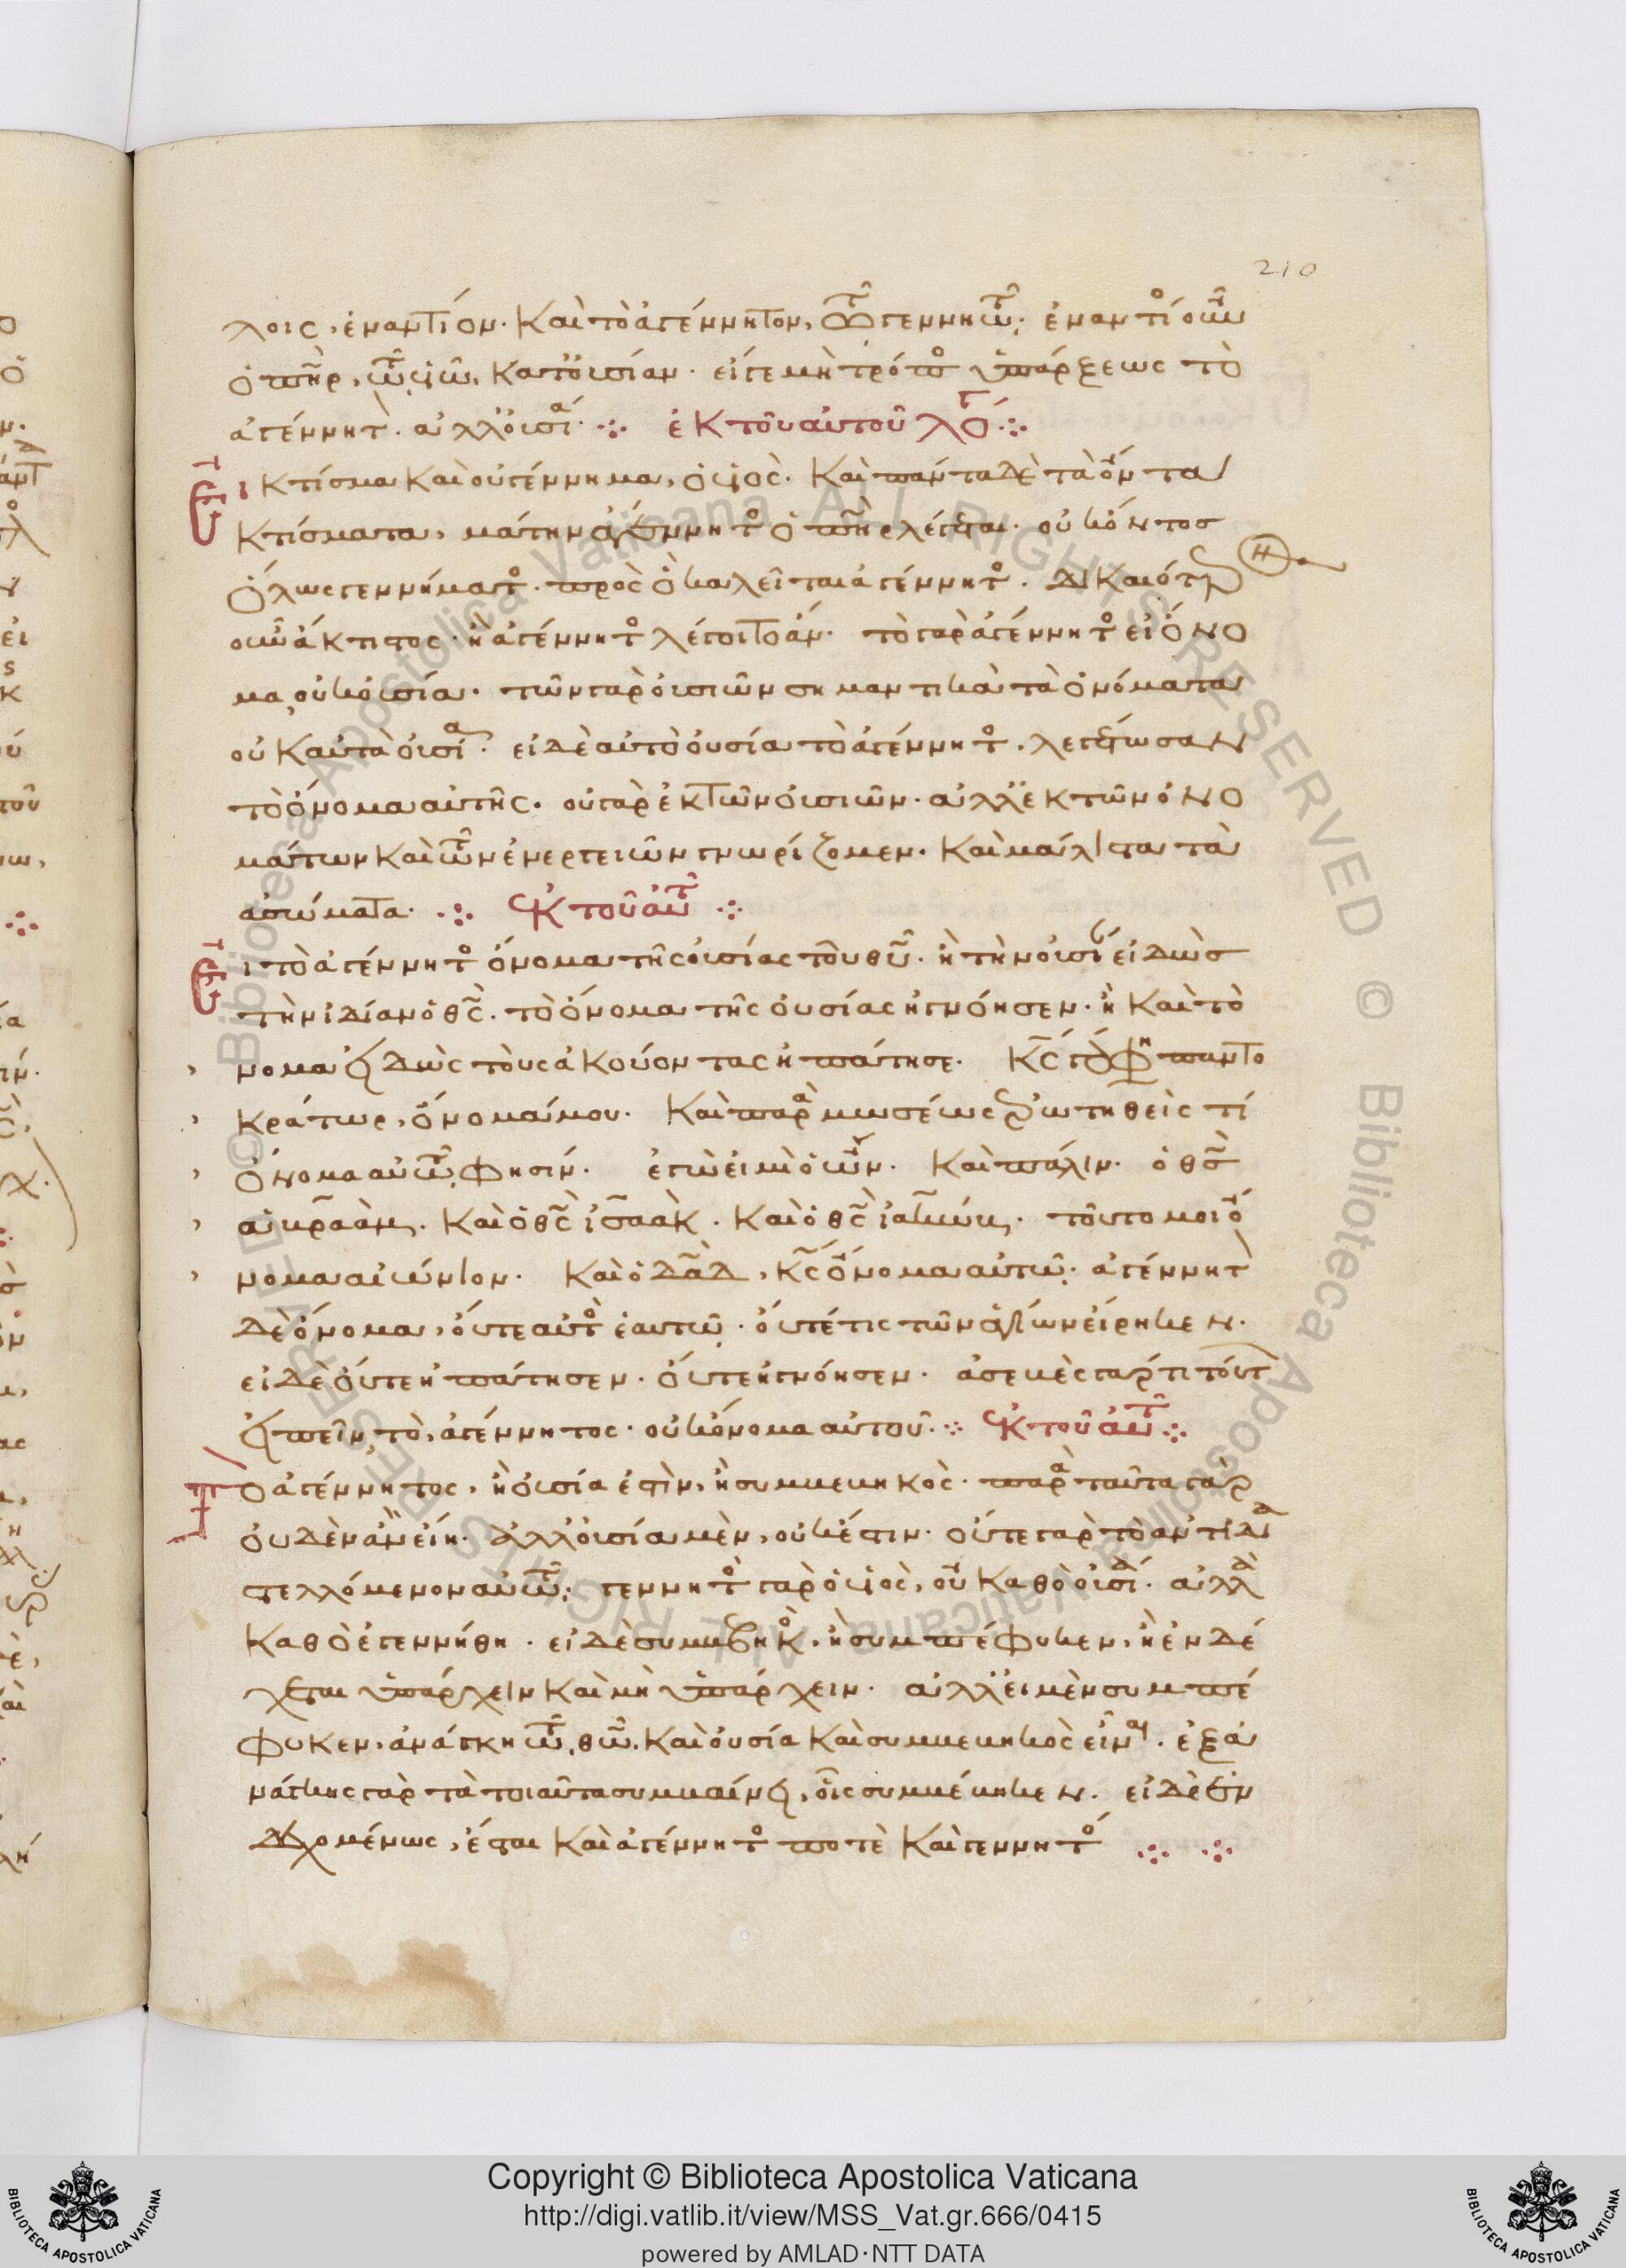 210
λοις, ἐναντίον. Καὶ τὸ ἀγέννητον, τῶ γεννητῶ. ἐναντίος οὖν
ὁ πὴρ, τῶ υἱῶ, κατ' οὐσίαν. εἴγε μὴ τρόπος ὑπάρξεως τὸ
ἀγέννητον. ἀλλ' οὐσία. ἐκ τοῦ αὐτοῦ λόγ
Εἰ κτίσμα καὶ οὐ γέννημα, ὁ υἱὸς. Καὶ πάντα δὲ τὰ ὄντα
κτίσματα, μάτην ἀγέννητος ὁ πὴρ λέγεται. οὐκ ὄντος
ὅλως γεννήματος. πρὸς ὃ καλεῖται ἀγέννητος. δικαιότερον
οὖν ἄκτιστος. ἢ ἀγέννητος λέγοιτο ἄν. τὸ γὰρ ἀγέννητος εἰ ὄνο
μα, οὐκ οὐσία. τῶν γὰρ οὐσιῶν σημαντικὰ τὰ ὀνόματα
οὐκ αὐτὰ οὐσία. εἰ δὲ αὐτὸ οὐσία τὸ ἀγέννητος. λεγέτωσαν
τὸ ὄνομα αὐτῆς. οὐ γὰρ ἐκ τῶν οὐσιῶν. ἀλλ' ἐκ τῶν ὀνο
μάτων καὶ τῶν ἐνεργειῶν γνωρίζομεν. Καὶ μάλιστα τὰ
ἀσώματα. Ἐκ τοῦ αὐτοῦ
Εἰ τὸ ἀγέννητος ὄνομα τῆς οὐσίας τοῦ θυ. ἢ τὴν οὐσίαν εἰδὼς
τὴν ἰδίαν ὁ θς. τὸ ὄνομα τῆς οὐσίας ἠγνόησεν. ἢ καὶ τὸ
νομα εἰδὼς τοὺς ἀκούοντας ἠπάτησε. Κς γάρ φη παντο
κράτωρ, ὄνομά μου. Καὶ παρὰ μωσέως ἐρωτηθεὶς τί
ὄνομα αὐτῶ, φησίν. ἐγώ εἰμι ὁ ὤν. Καὶ πάλιν. ὁ θς
ἀβραάμ. Καὶ ὁ θς ἰσαάκ. Καὶ ὁ θς ἰακώβ. τοῦτο μοι ὄ
νομα αἰώνιον. Καὶ ὁ δαδ, κς ὄνομα αὐτῶ. ἀγέννητον
δὲ ὄνομα, οὔτε αὐτὸς ἑαυτῶ. οὔτέ τις τῶν ἁγίων εἴρηκεν.
εἰ δὲ οὔτε ἠπάτησεν. οὔτε ἠγνόησεν. ἀσεβὲς γάρ τι τοῦτ
εἰπεῖν τὸ, ἀγέννητος. οὐκ ὄνομα αὐτοῦ. Ἐκ τοῦ αὐτοῦ
Τὸ ἀγέννητος, ἢ οὐσία ἐστὶν, ἢ συμβεβηκὸς. παρὰ ταῦτα γὰρ
οὐδὲν ἂν εἴη. ἀλλ' οὐσία μὲν, οὐκ ἔστιν. οὔτε γὰρ τὸ αντιδια
στελλόμενον αὐτῶ. γεννητὸς γὰρ ὁ υἱὸς, οὐ καθὸ οὐσία. ἀλλὰ
καθὸ ἐγεννήθη. εἰ δὲ συμβεβηκὸς, ἢ συμπέφυκεν, ἢ ἐνδέ
χεται ὑπάρχειν καὶ μὴ ὑπάρχειν. ἀλλ' εἰ μὲν συμπέ
φυκεν. ἀνάγκη τῶ θῶ. καὶ οὐσία καὶ συμβεβηκὸς εἶναι. ἐξ ἀ
νάγκης γὰρ τὰ τοιαῦτα συμβαίνει, οἷς συμβέβηκεν. εἰ δὲ ἐν
δεχομένως, ἔσται καὶ ἀγέννητος ποτὲ καὶ γεννητός
Copyright © Biblioteca Apostolica Vaticana
http://digi.vatlib.it/view/MSS_Vat.gr.666/0415
powered by AMLAD·NTT DATA